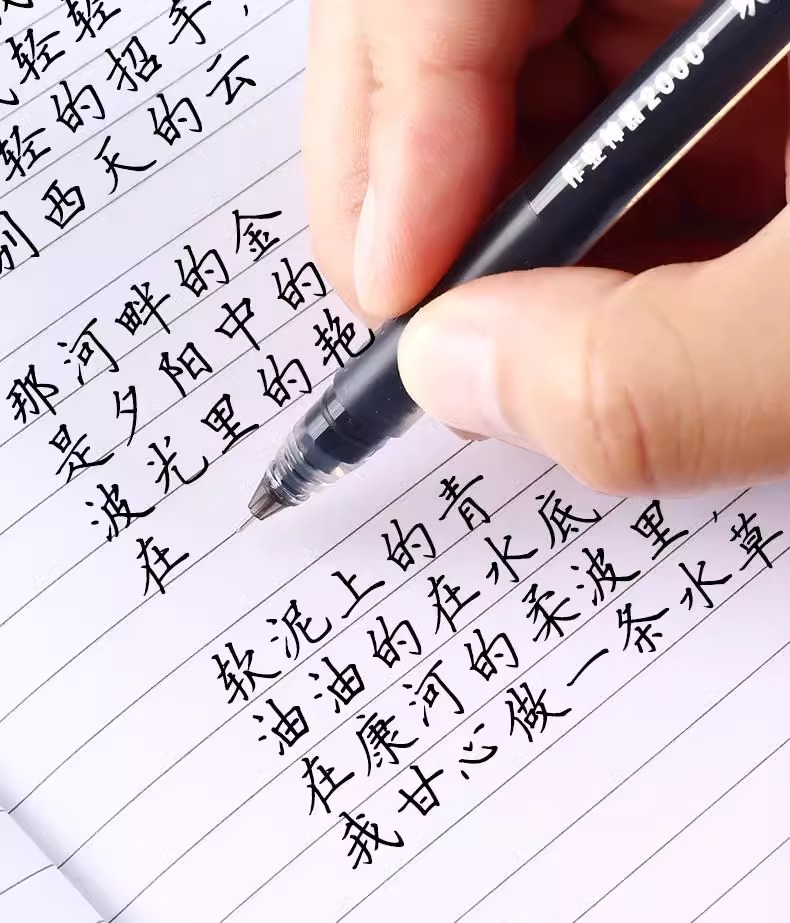 轻轻
轻轻的招手，
轻的云
别西天的云
那河畔的金
是夕阳中的
波光里的艳
在
软泥上的青
油油的在水底
在康河的柔波里，
我甘心做一条水草
作业神器2000